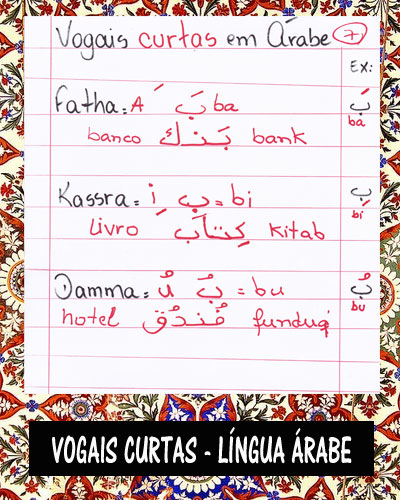 Vogais curtas em Árabe 7
Ex:
Fatha: A َ بَ ba
بَ
ba
banco بَنك bank
Kassra = إِ بِ = bi
بِ
bi
Livro كِتَاب Kitab
Damma = اُ بُ = bu
بُ
bu
hotel فُندُق funduq
VOGAIS CURTAS - LÍNGUA ÁRABE